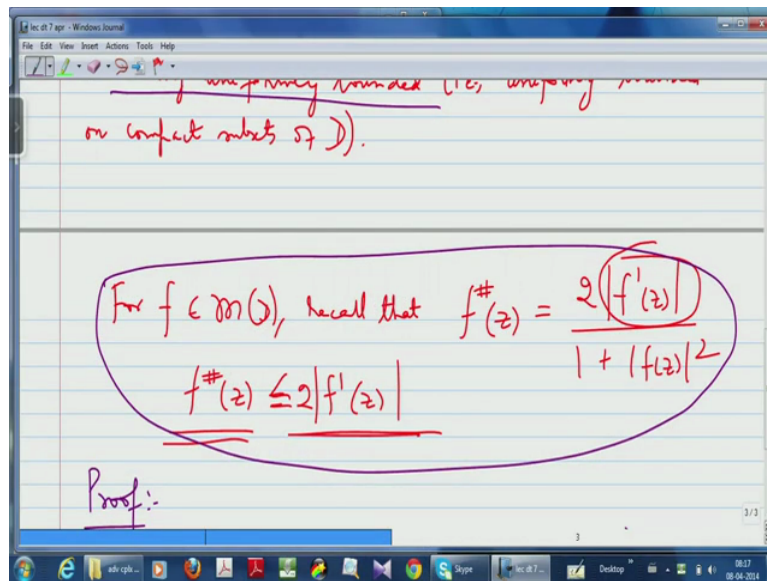 lec dt 7 apr - Windows Journal
File Edit View Insert Actions Tools Help
uniformly bounded (i.e., uniformly bounded
on compact subsets of D).
For f ∈ M(D), recall that f^#(z) = 2|f'(z)| / 1 + |f(z)|^2
f^#(z) ≤ 2|f'(z)|
Proof:-
3/3
3
adv cplx ... Skype lec dt 7 ... Desktop 08:17
08-04-2014